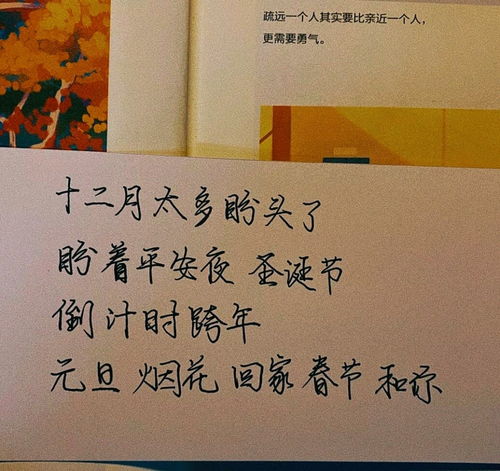 疏远一个人其实要比亲近一个人，
更需要勇气。
十二月太多盼头了
盼着平安夜 圣诞节
倒计时跨年
元旦 烟花 回家 春节 和你